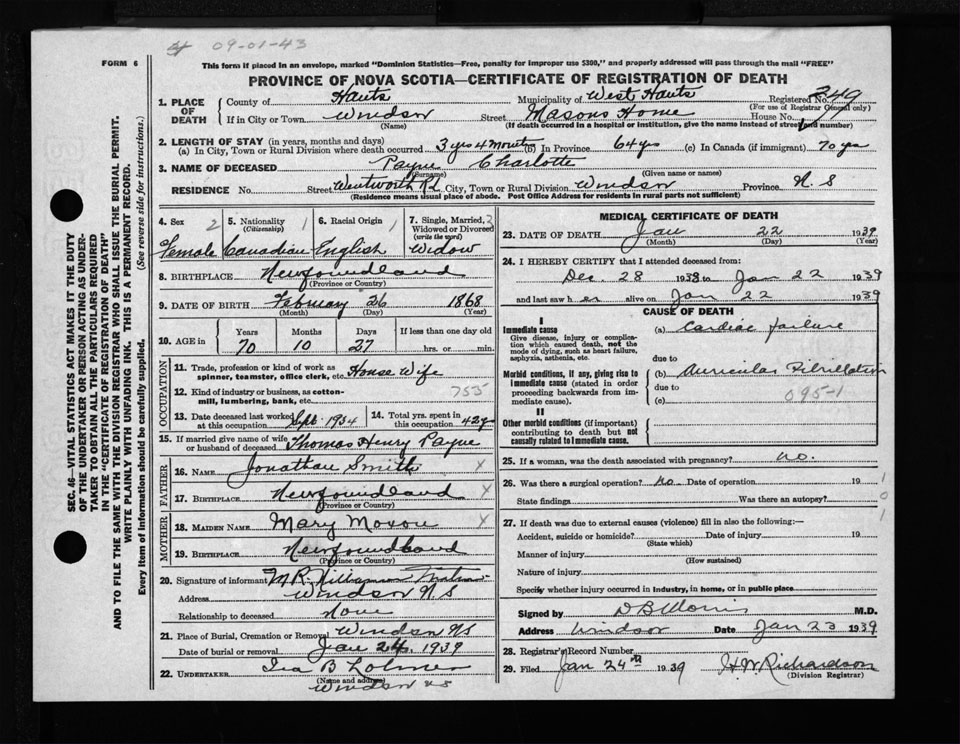 09-01-43
FORM 6
This form if placed in an envelope, marked "Dominion Statistics—Free, penalty for improper use $300," and properly addressed will pass through the mail "FREE"
PROVINCE OF NOVA SCOTIA—CERTIFICATE OF REGISTRATION OF DEATH
SEC. 46—VITAL STATISTICS ACT MAKES IT THE DUTY
OF THE UNDERTAKER OR PERSON ACTING AS UNDER-
TAKER TO OBTAIN ALL THE PARTICULARS REQUIRED
IN THE "CERTIFICATE OF REGISTRATION OF DEATH"
AND TO FILE THE SAME WITH THE DIVISION REGISTRAR WHO SHALL ISSUE THE BURIAL PERMIT.
WRITE PLAINLY WITH UNFADING INK. THIS IS A PERMANENT RECORD.
Every item of Information should be carefully supplied. (See reverse side for instructions.)
1. PLACE OF DEATH County of Hants Municipality of West Hants Registered No. 349
(For use of Registrar General only)
If in City or Town Windsor Street Masons Home House No.
(Name) (If death occurred in a hospital or institution, give the name instead of street and number)
2. LENGTH OF STAY (in years, months and days)
(a) In City, Town or Rural Division where death occurred 3 yrs 4 months (b) In Province 64 yrs (c) In Canada (if immigrant) 70 yrs
3. NAME OF DECEASED Payne Charlotte
(Surname) (Given name or names)
RESIDENCE No. Street Wentworth Rd City, Town or Rural Division Windsor Province N. S
(Residence means usual place of abode. Post Office Address for residents in rural parts not sufficient)
4. Sex 2 5. Nationality 1 6. Racial Origin 1 7. Single, Married, 2
(Citizenship) Widowed or Divorced
(write the word)
Female Canadian English Widow
8. BIRTHPLACE Newfoundland
(Province or Country)
9. DATE OF BIRTH February 26 1868
(Month) (Day) (Year)
10. AGE in Years Months Days If less than one day old
70 10 27 hrs. or min.
OCCUPATION
11. Trade, profession or kind of work as
spinner, teamster, office clerk, etc. House Wife
12. Kind of industry or business, as cotton- 755
mill, lumbering, bank, etc.
13. Date deceased last worked
at this occupation Sept. 1934 14. Total yrs. spent in
this occupation 42 yrs
15. If married give name of wife
or husband of deceased Thomas Henry Payne
FATHER
16. NAME Jonathan Smith X
17. BIRTHPLACE Newfoundland X
(Province or Country)
MOTHER
18. MAIDEN NAME Mary Moxon X
19. BIRTHPLACE Newfoundland
(Province or Country)
20. Signature of informant M R Williamson
Address Windsor N S
Relationship to deceased None
21. Place of Burial, Cremation or Removal Windsor NS
Date of burial or removal Jan 24, 1939
22. UNDERTAKER Ira B Lohnes
(Name and address)
Windsor NS
MEDICAL CERTIFICATE OF DEATH
23. DATE OF DEATH Jan 22 1939
(Month) (Day) (Year)
24. I HEREBY CERTIFY that I attended deceased from:
Dec. 28 1938 to Jan 22 1939
and last saw her alive on Jan 22 1939
CAUSE OF DEATH
I
Immediate cause (a) Cardiac failure
Give disease, injury or complica-
tion which caused death, not the
mode of dying, such as heart failure,
asphyxia, asthenia, etc.
due to
Morbid conditions, if any, giving rise to (b) Auricular Fibrillation
immediate cause (stated in order due to
proceeding backwards from im- (c) 095-1
mediate cause).
II
Other morbid conditions (if important)
contributing to death but not
causally related to immediate cause.
25. If a woman, was the death associated with pregnancy? no.
26. Was there a surgical operation? no Date of operation 19 1
State findings Was there an autopsy? 0
27. If death was due to external causes (violence) fill in also the following:— 1
Accident, suicide or homicide? Date of injury 19
(State which)
Manner of injury
(How sustained)
Nature of injury
Specify whether injury occurred in industry, in home, or in public place
Signed by D B Morris M.D.
Address Windsor Date Jan 23 1939
28. Registrar's Record Number
29. Filed Jan 24th 1939 H.W. Richardson
(Division Registrar)